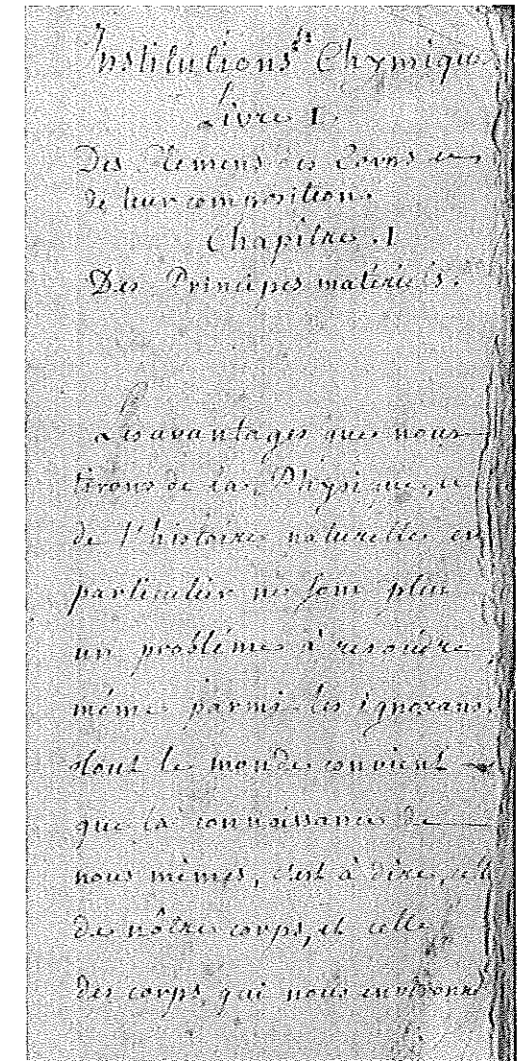 Institutions Chymiques
Livre I
Des Elemens des Corps et
de leur composition.
Chapitre I
Des Principes matériels.
Les avantages que nous
tirons de la Physique, et
de l'histoire naturelle en
particulier ne sont plus
un problême à resoudre
même parmi les ignorans,
tout le monde convient
que la connoissance de
nous mêmes, c'est à dire, celle
de nôtre corps, et celle
des corps qui nous environne